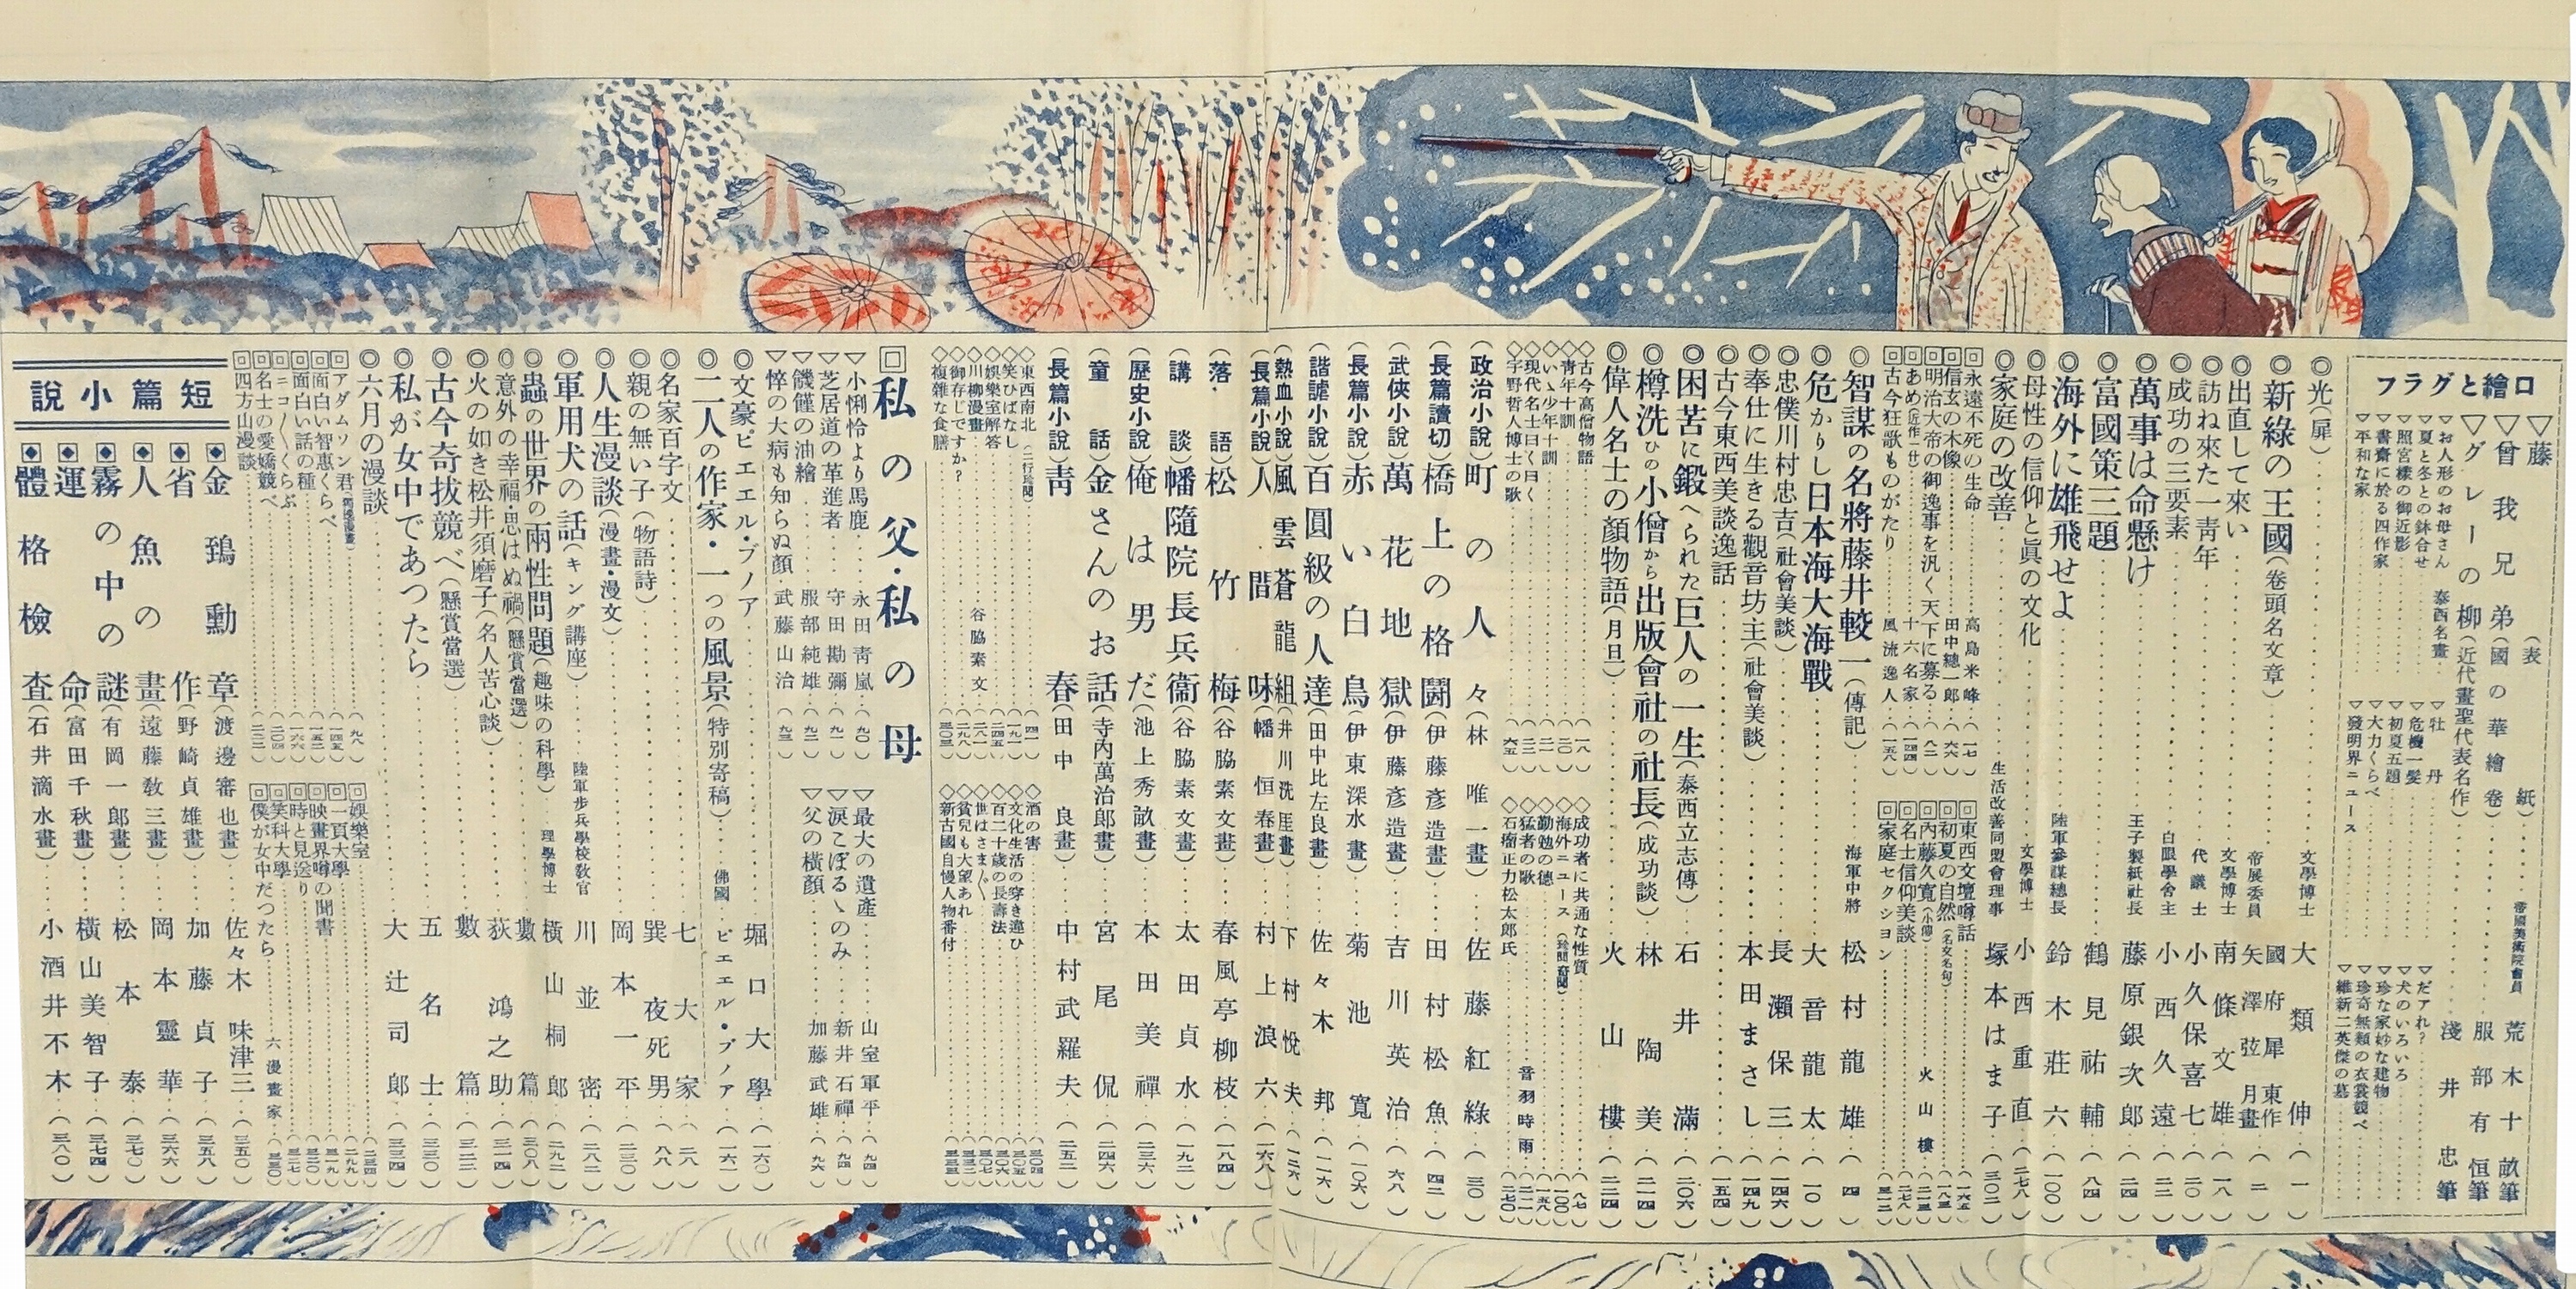 口繪とグラフ
▽藤（表紙）……帝國美術院會員 荒木十畝筆
▽曾我兄弟（國の華繪卷）……服部有恒筆
▽グレーの柳（近代畫聖代表名作）……淺井忠筆
▽お人形のお母さん 泰西名畫
▽夏と冬との鉢合せ
▽照宮樣の御近影
▽書齋に於る四作家
▽平和な家
▽牡丹
▽危機一髮
▽初夏五題
▽大力くらべ
▽發明界ニュース
▽だアれ？
▽犬のいろいろ
▽珍な家妙な建物
▽珍奇無類の衣裳競べ
▽維新二英傑の墓
◎光（扉）……文學博士 大類伸（一）
◎新綠の王國（卷頭名文章）……國府犀東作 帝展委員 矢澤弦月畫（二）
◎出直して來い……文學博士 南條文雄（一八）
◎訪ね來た一靑年……代議士 小久保喜七（二〇）
◎成功の三要素……白眼學舍主 小西久遠（二二）
◎萬事は命懸け……王子製紙社長 藤原銀次郎（二四）
◎富國策三題……鶴見祐輔（八四）
◎海外に雄飛せよ……陸軍參謀總長 鈴木莊六（一〇〇）
◎母性の信仰と眞の文化……文學博士 小西重直（二七八）
◎家庭の改善……生活改善同盟會理事 塚本はま子（三〇二）
回永遠不死の生命……高島米峰（一七）
回信玄の木像……田中總一郎（六六）
回明治大帝の御逸事を汎く天下に募る……（八二）
回あめ（近作二廿）……十六名家（一四四）
回古今狂歌ものがたり……風流逸人（一五八）
回東西文壇噂話……（一六五）
回初夏の自然（名文名句）……（一八三）
回內藤久寬（小傳）……火山樓（二一三）
回名士信仰美談……（二七八）
回家庭セクション……（三一二）
◎智謀の名將藤井較一（傳記）……海軍中將 松村龍雄（四）
◎危かりし日本海大海戰……大音龍太（一〇）
◎忠僕川村忠吉（社會美談）……長瀨保三（一四六）
◎奉仕に生きる觀音坊主（社會美談）……本田まさし（一四九）
◎古今東西美談逸話……（一五四）
◎困苦に鍛へられた巨人の一生（泰西立志傳）……石井滿（二〇六）
◎樽洗ひの小僧から出版會社の社長（成功談）……林陶美（二一四）
◎偉人名士の顏物語（月旦）……火山樓（二二四）
◇古今高僧物語……（一八）
◇靑年十訓……（二〇）
◇いゝ少年十訓……（二一）
◇現代名士曰く曰く……（二三）
◇宇野哲人博士の歌……（六五）
◇成功者に共通な性質……（八七）
◇海外ニュース（珍聞奇聞）……（一〇〇）
◇勤勉の德……（一五九）
◇猛者の歌……音羽時雨（二一一）
◇石瘤正力松太郎氏……（二七〇）
政治小說 町の人々（林唯一畫）……佐藤紅綠（三〇）
長篇讀切 橋上の格鬪（伊藤彥造畫）……田村松魚（四二）
武俠小說 萬花地獄（伊藤彥造畫）……吉川英治（六八）
長篇小說 赤い白鳥（伊東深水畫）……菊池寬（一〇六）
諧謔小說 百圓級の人達（田中比左良畫）……佐々木邦（一一六）
熱血小說 風雲蒼龍組（井川洗厓畫）……下村悅夫（一二六）
長篇小說 人間味（幡恒春畫）……村上浪六（一六八）
落語 松竹梅（谷脇素文畫）……春風亭柳枝（一八四）
講談 幡隨院長兵衞（谷脇素文畫）……太田貞水（一九二）
歷史小說 俺は男だ（池上秀畝畫）……本田美禪（二三六）
童話 金さんのお話（寺內萬治郎畫）……宮尾侃（二四六）
長篇小說 靑春（田中良畫）……中村武羅夫（二五二）
◇東西南北（二行珍聞）……（四一）
◇笑ひばなし……（一九一）
◇娛樂室解答……（二四五）
◇川柳漫畫……谷脇素文（二八一）
◇御存じですか？……（二九八）
◇複雜な食膳……（三〇三）
◇酒の害……（三〇四）
◇文化生活の穿き違ひ……（三〇五）
◇百二十歲の長壽法……（三〇六）
◇世はさま〴〵……（三〇七）
◇貧兒も大望あれ……（三三二）
◇新古國自慢人物番付……（三三三）
回私の父・私の母
▽小悧怜より馬鹿……永田靑嵐（九〇）
▽芝居道の革進者……守田勘彌（九一）
▽饑饉の油繪……服部純雄（九二）
▽悴の大病も知らぬ顏……武藤山治（九三）
▽最大の遺產……山室軍平（九四）
▽淚こぼるゝのみ……新井石禪（九四）
▽父の橫顏……加藤武雄（九六）
◎文豪ピエエル・ブノア……堀口大學（一六〇）
◎二人の作家・一つの風景（特別寄稿）……佛國 ピエエル・ブノア（一六一）
◎名家百字文……七大家（二八）
◎親の無い子（物語詩）……巽夜死男（八八）
◎人生漫談（漫畫・漫文）……岡本一平（二三〇）
◎軍用犬の話（キング講座）……陸軍步兵學校敎官 川並密（二八二）
◎蟲の世界の兩性問題（趣味の科學）……理學博士 橫山桐郎（二九二）
◎意外の幸福・思はぬ禍（懸賞當選）……數篇（三〇八）
◎火の如き松井須磨子（名人苦心談）……荻鴻之助（三一四）
◎古今奇拔競べ（懸賞當選）……數篇（三二三）
◎私が女中であつたら……五名士（三三〇）
◎六月の漫談……大辻司郎（三三四）
回アダムソン君（滑稽漫畫）……（九八）
回面白い智惠くらべ……（一四五）
回面白い話の種……（一五二）
回ニコ〳〵くらぶ……（一六六）
回名士の愛嬌競べ……（二〇四）
回四方山漫談……（二二二）
回娛樂室……（二三四）
回一頁大學……（二九九）
回映畫界噂の聞書……（三一九）
回時と見送り……（三二〇）
回笑科大學……（三二七）
回僕が女中だつたら……六漫畫家（三三〇）
短篇小說
金鵄勳章（渡邊審也畫）……佐々木味津三（三五〇）
省作（野崎貞雄畫）……加藤貞子（三五八）
人魚の畫（遠藤敎三畫）……岡本靈華（三六六）
霧の中の謎（有岡一郎畫）……松本泰（三七〇）
運命（富田千秋畫）……橫山美智子（三七四）
體格檢査（石井滴水畫）……小酒井不木（三八〇）